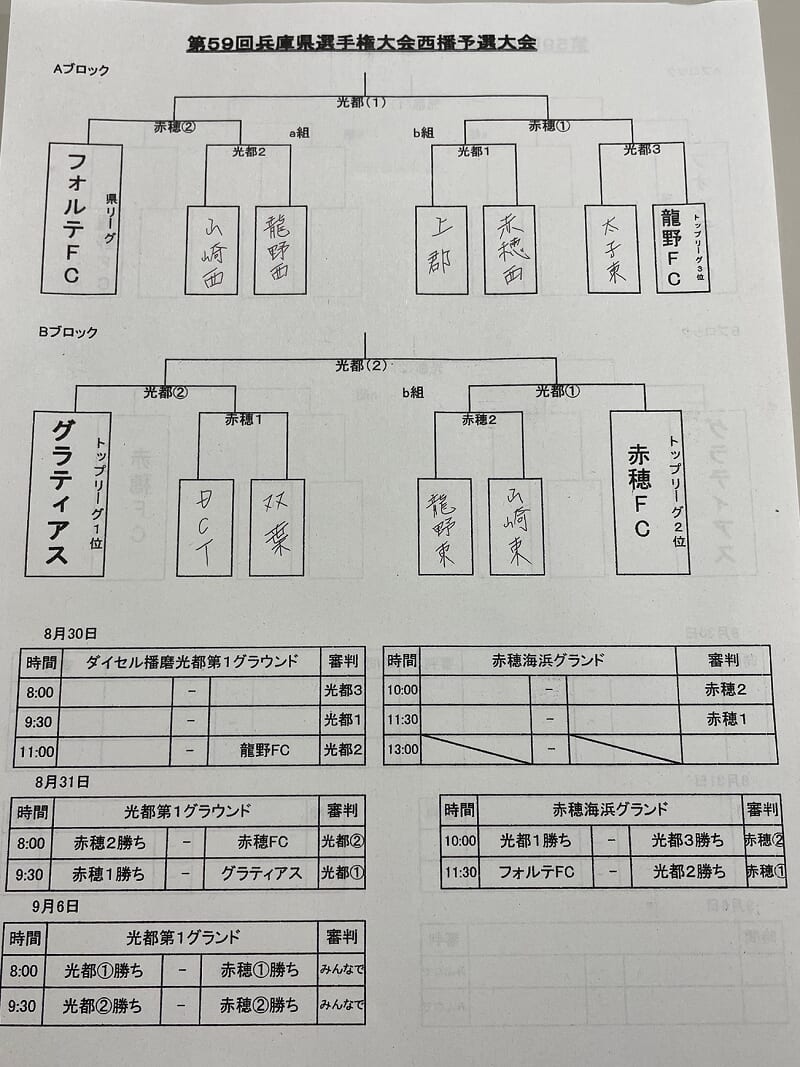 第59回兵庫県選手権大会西播予選大会
Aブロック
光都(1)
赤穂② a組 b組 赤穂①
光都2 光都1 光都3
フォルテFC 県リーグ
山崎西
龍野西
上郡
赤穂西
太子東
龍野FC トップリーグ3位
Bブロック
光都(2)
光都② b組 光都①
赤穂1 赤穂2
グラティアス トップリーグ1位
双葉
龍野東
山崎東
赤穂FC トップリーグ2位
8月30日
時間 ダイセル播磨光都第1グラウンド 審判
8:00 - 光都3
9:30 - 光都1
11:00 - 龍野FC 光都2
時間 赤穂海浜グランド 審判
10:00 - 赤穂2
11:30 - 赤穂1
13:00 -
8月31日
時間 光都第1グラウンド 審判
8:00 赤穂2勝ち - 赤穂FC 光都②
9:30 赤穂1勝ち - グラティアス 光都①
時間 赤穂海浜グランド 審判
10:00 光都1勝ち - 光都3勝ち 赤穂②
11:30 フォルテFC - 光都2勝ち 赤穂①
9月6日
時間 光都第1グランド 審判
8:00 光都①勝ち - 赤穂①勝ち みんなで
9:30 光都②勝ち - 赤穂②勝ち みんなで